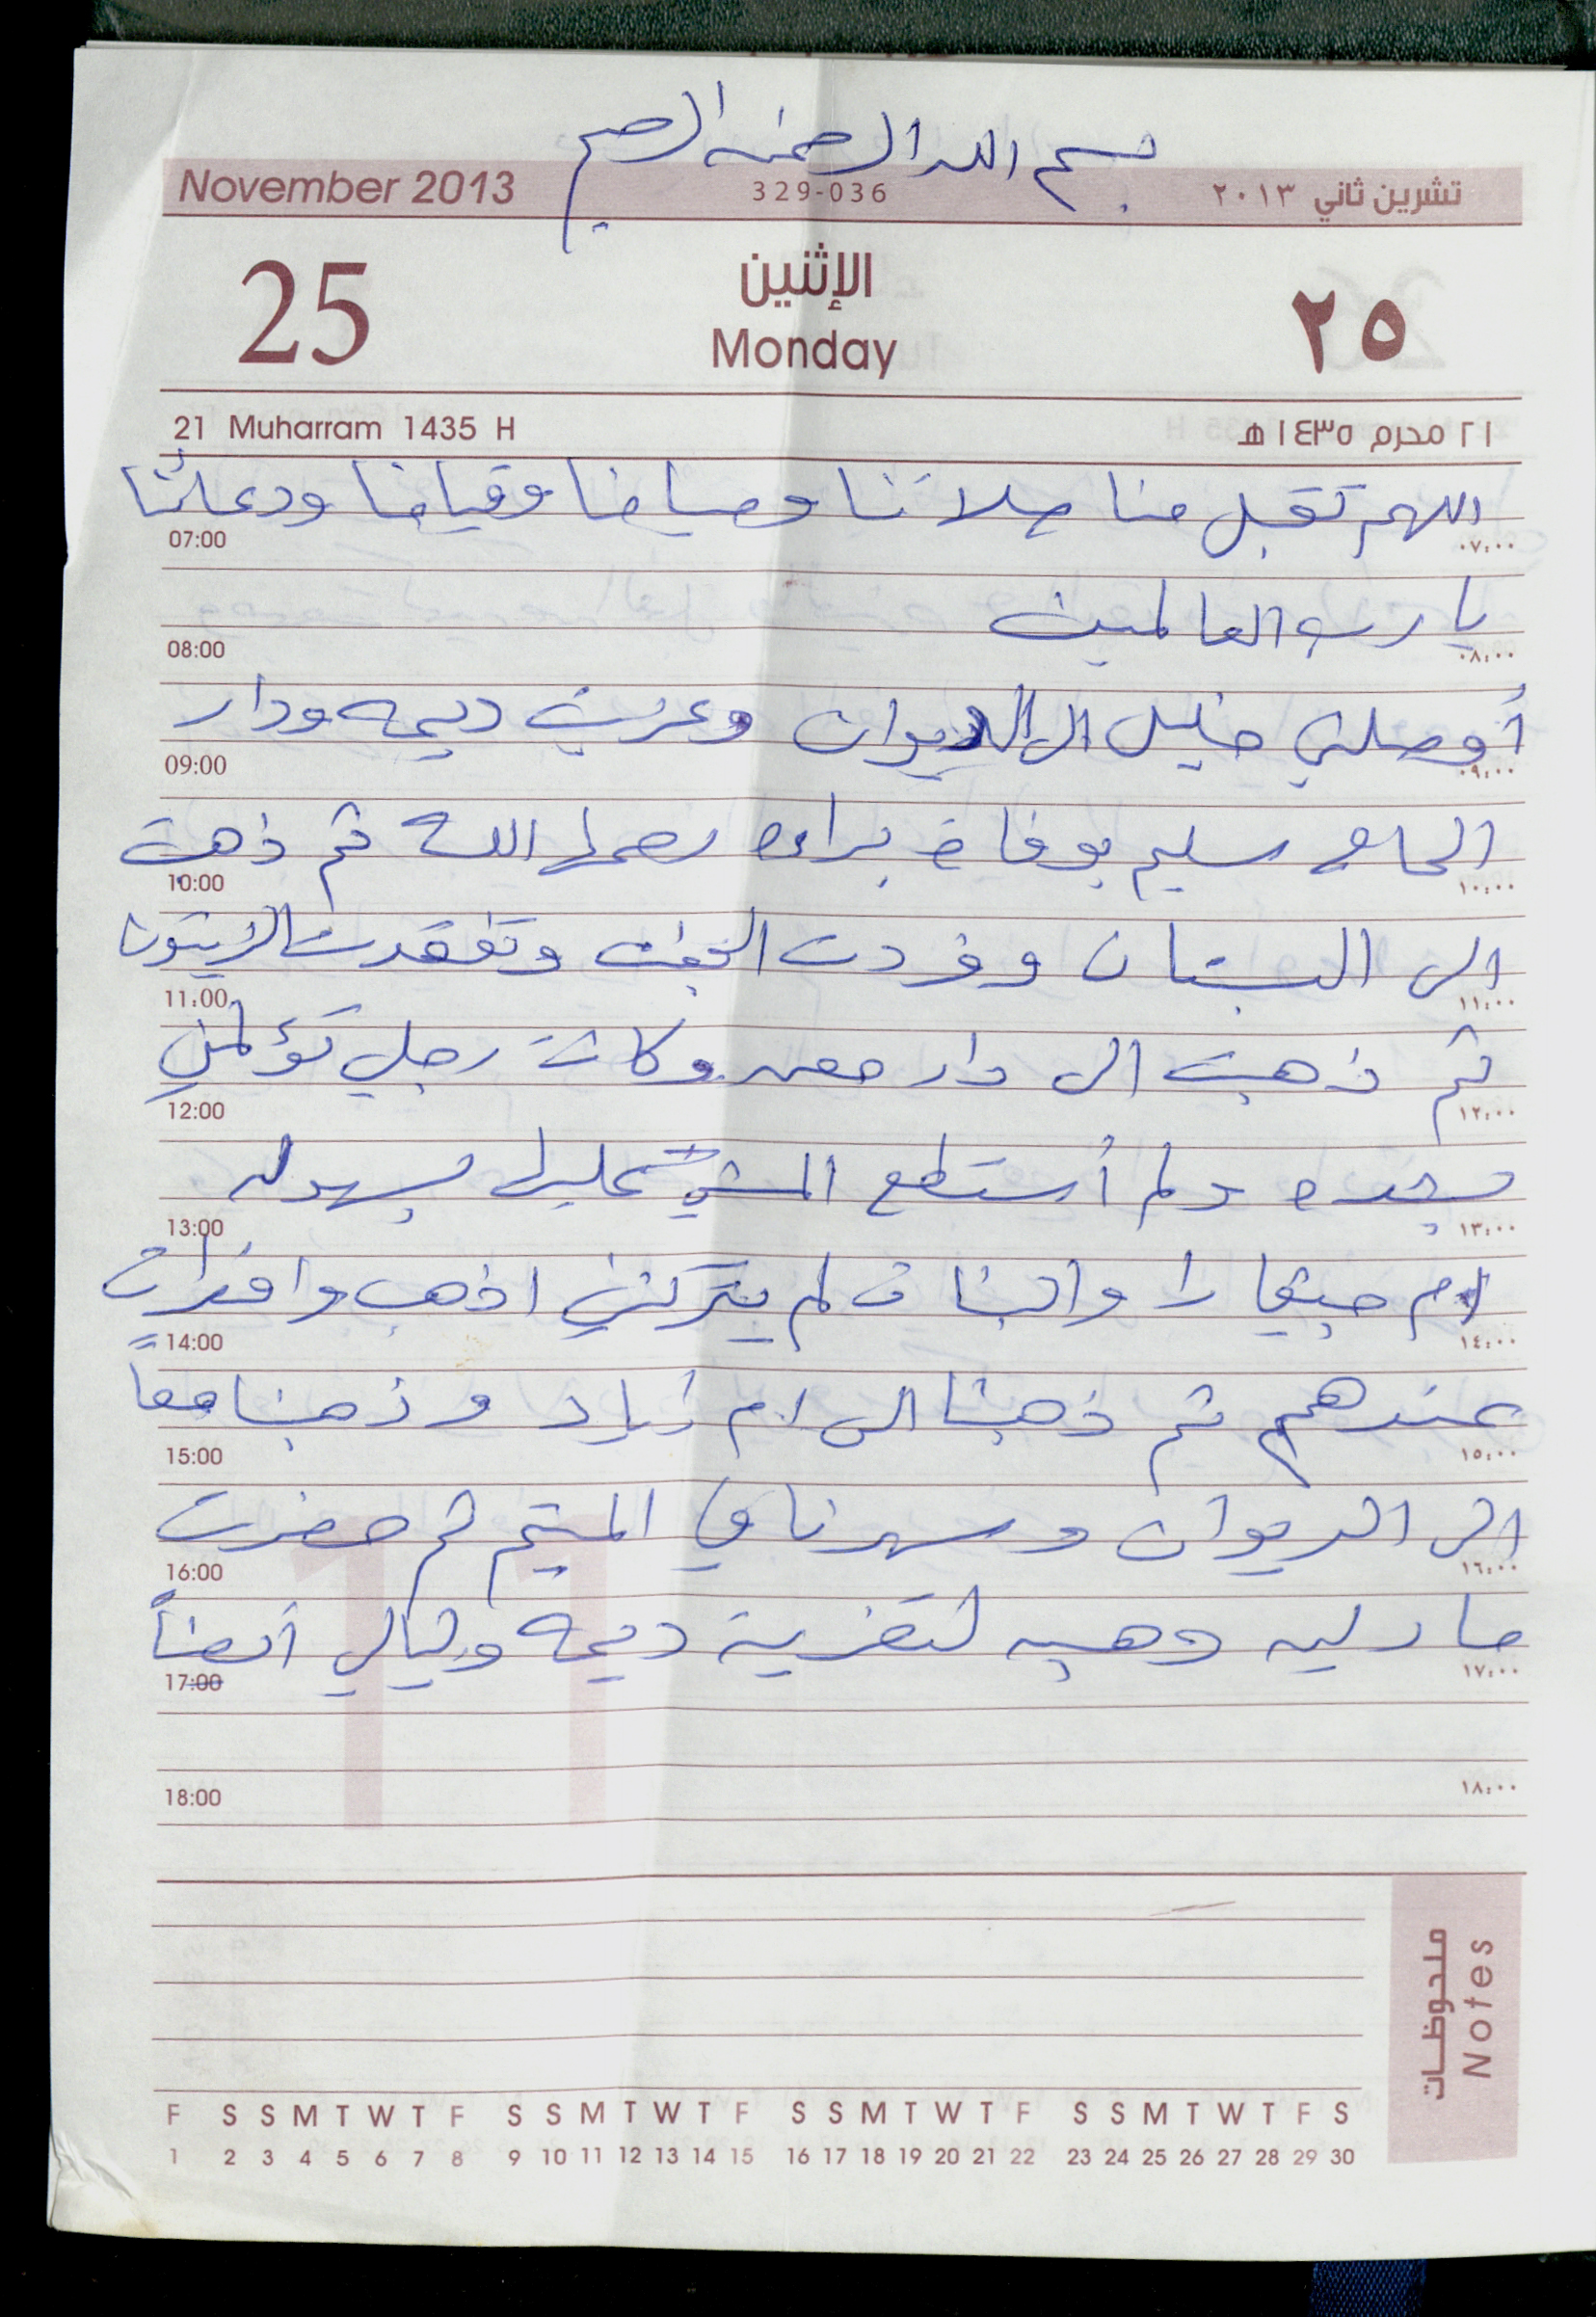 بسم الله الرحمن الرحيم
November 2013 329-036 تشرين ثاني ٢٠١٣
25 الإثنين ٢٥
Monday
21 Muharram 1435 H ٢١ محرم ١٤٣٥ هـ
اللهم تقبل منا صلاتنا وصيامنا وقيامنا ودعائنا
07:00 ٠٧:٠٠
يا رب العالمين
08:00 ٠٨:٠٠
أوصلني خليل الى الديوان وعزيت ديمه ودار
09:00 ٠٩:٠٠
الحاج سليم بوفاة براءه رحمها الله ثم ذهبت
10:00 ١٠:٠٠
الى البستان وفردت الجفت وتفقدت الزيتون
11:00 ١١:٠٠
ثم ذهبت الى دار معن وكانت رجلي تؤلمني
12:00 ١٢:٠٠
بشده ولم أستطع المشي عليها بسهوله
13:00 ١٣:٠٠
ام جيفارا والبنات لم يتركنني اذهب وافطرت
14:00 ١٤:٠٠
عندهم ثم ذهبنا الى ام زياد وذهبنا معاً
15:00 ١٥:٠٠
الى الديوان وسهرنا في الميتم ثم حضرت
16:00 ١٦:٠٠
مارليه وهبه لتعزية ديمه وليالي أيضاً
17:00 ١٧:٠٠
18:00 ١٨:٠٠
11
ملحوظات
Notes
F S S M T W T F S S M T W T F S S M T W T F S S M T W T F S
1 2 3 4 5 6 7 8 9 10 11 12 13 14 15 16 17 18 19 20 21 22 23 24 25 26 27 28 29 30